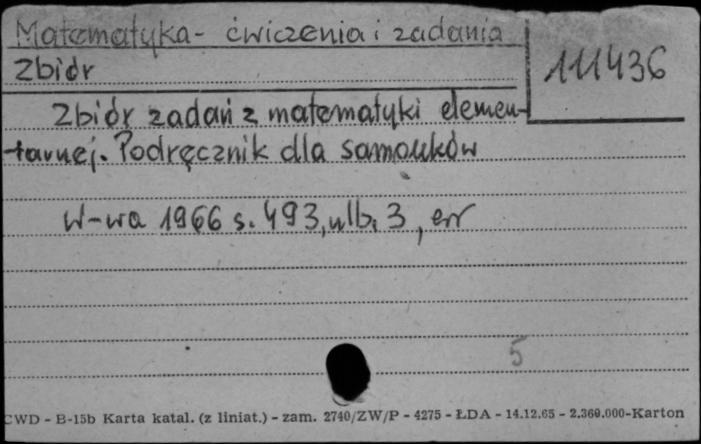 Matematyka - ćwiczenia i zadania
Zbiór
111436
Zbiór zadań z matematyki elemen-
tarnej. Podręcznik dla samouków
W-wa 1966 s. 493, nlb. 3, err
5
CWD - B-15b Karta katal. (z liniat.) - zam. 2740/ZW/P - 4275 - ŁDA - 14.12.65 - 2.360.000-Karton